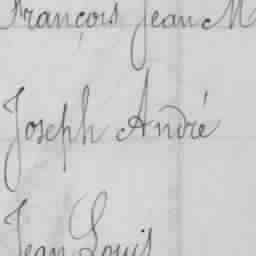 François Jean M
Joseph André
Jean Louis